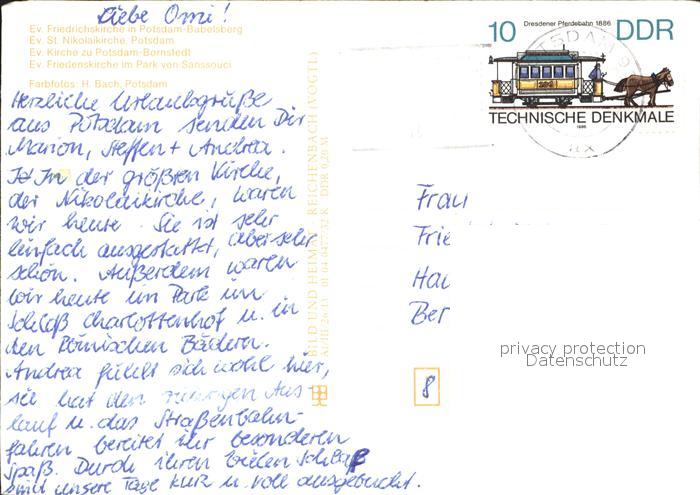 Liebe Omi!
Ev. Friedrichskirche in Potsdam-Babelsberg
Ev. St. Nikolaikirche, Potsdam
Ev. Kirche zu Potsdam-Bornstedt
Ev. Friedenskirche im Park von Sanssouci
Farbfotos: H. Bach, Potsdam
Herzliche Urlaubsgrüße
aus Potsdam senden Dir
Marion, Steffen + Andrea.
In der größten Kirche,
der Nikolaikirche, waren
wir heute. Sie ist sehr
einfach ausgestattet, aber sehr
schön. Außerdem waren
wir heute im Park im
Schloß Charlottenhof u. in
den Römischen Bädern.
Andrea fühlt sich wohl hier,
sie hat den Aus-
lauf u. das Straßenbahn-
fahren bereitet ihr besonderen
Spaß. Durch ihren vielen Schlaf
sind unsere Tage kurz u. voll ausgebucht.
BILD UND HEIMAT REICHENBACH (VOGTL)
DDR 0,20 M
Dresdener Pferdebahn 1886
10 DDR
TECHNISCHE DENKMALE
1986
Frau
Frie
Ber
8
privacy protection
Datenschutz